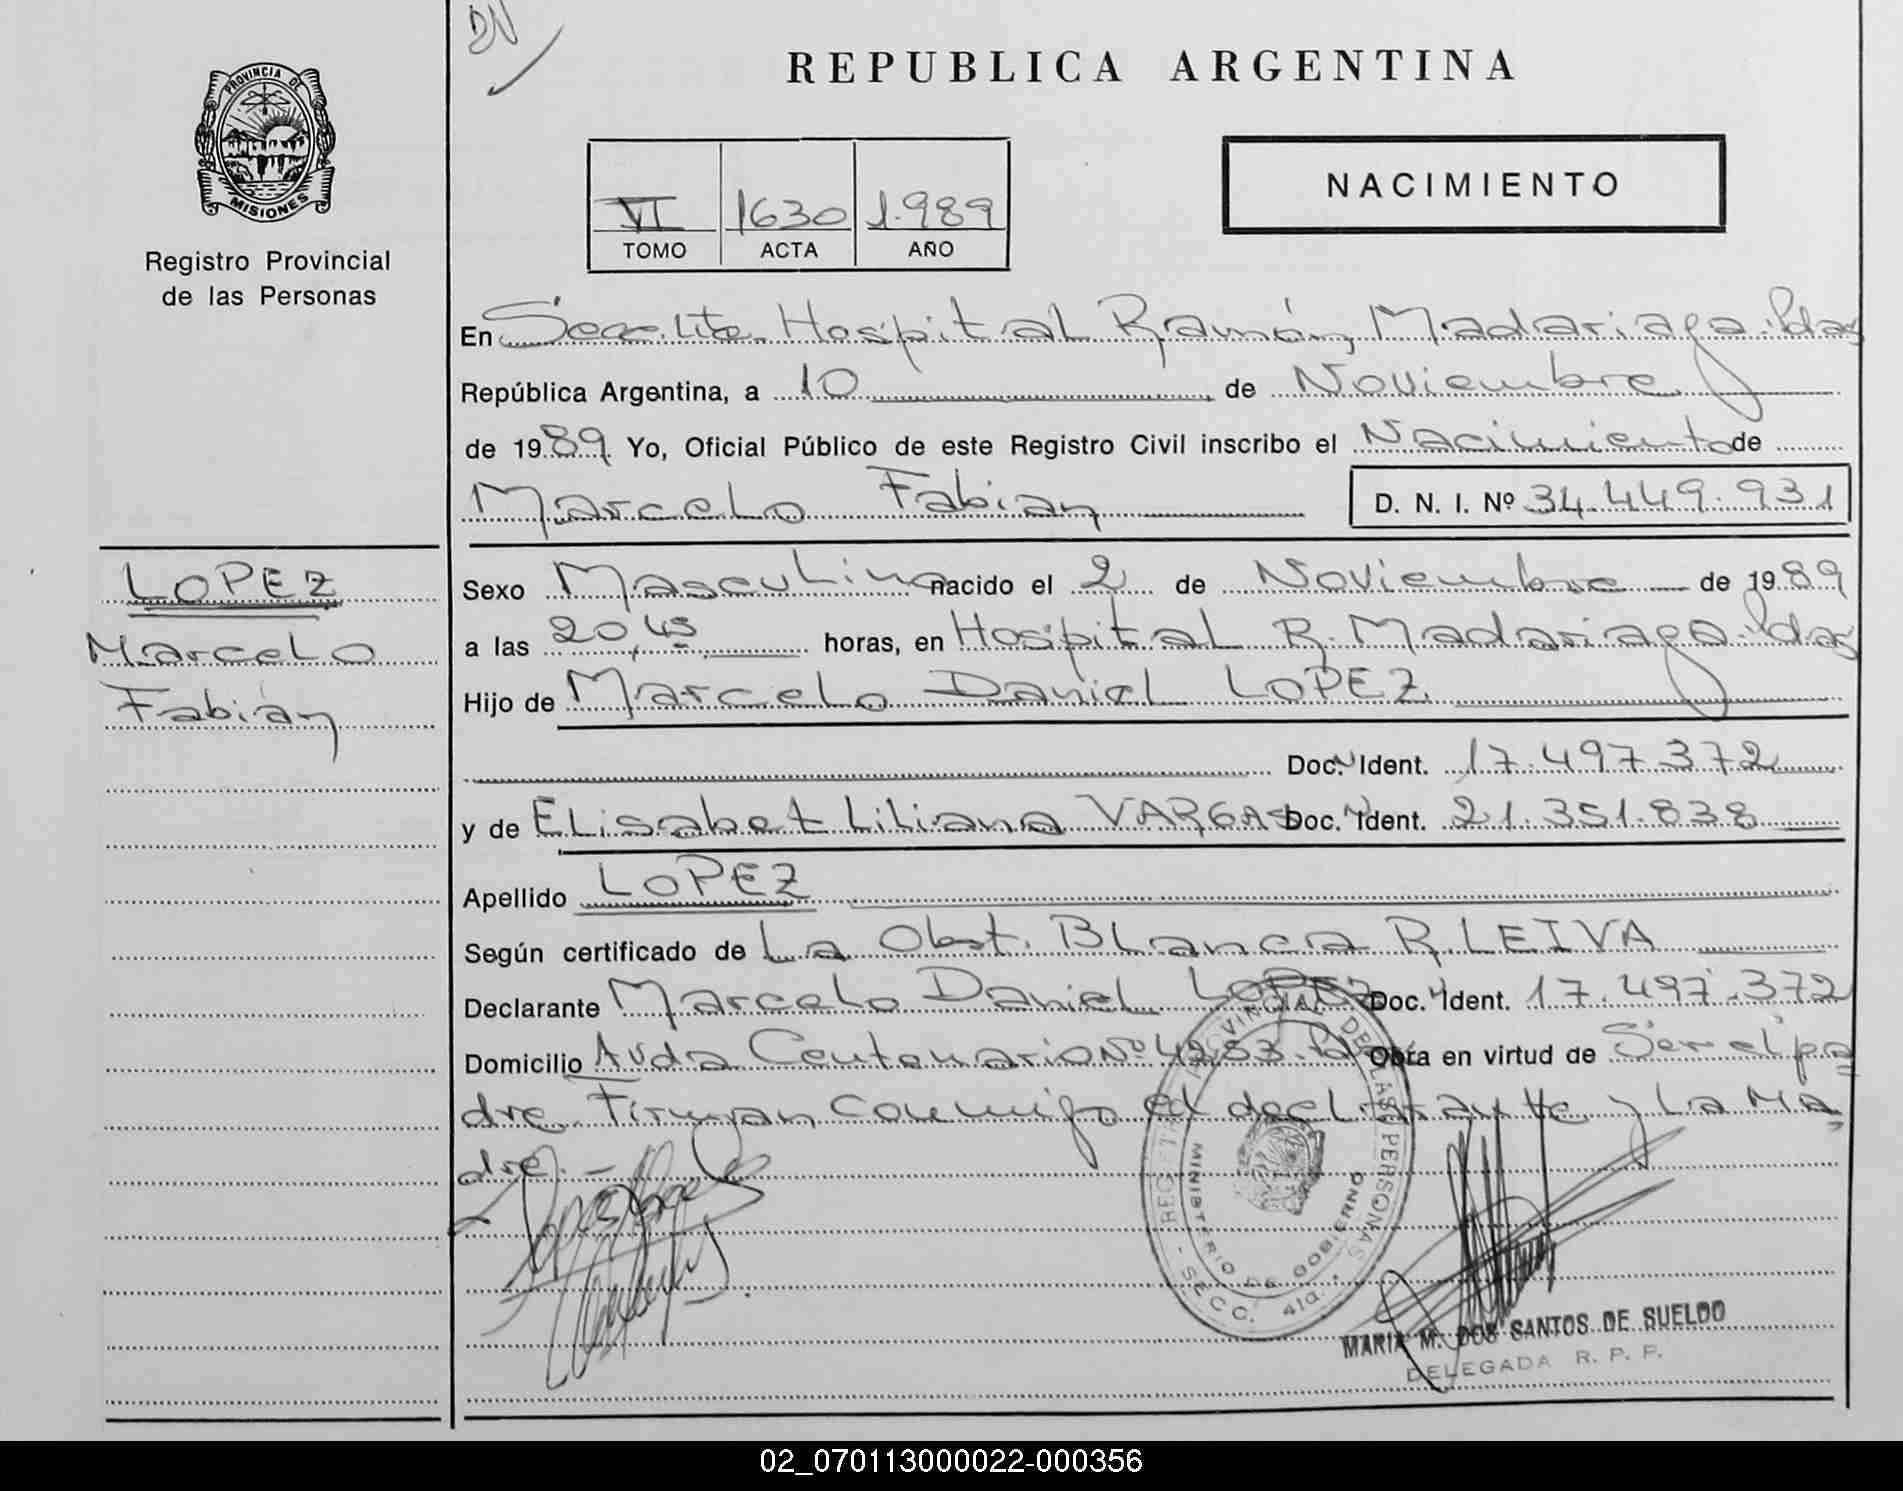 DN
PROVINCIA DE
MISIONES
Registro Provincial
de las Personas
REPUBLICA ARGENTINA
VI 1630 1.989
TOMO ACTA AÑO
NACIMIENTO
En Secc. Hospital Ramón Madariaga. Pdas
República Argentina, a 10 de Noviembre
de 1989 Yo, Oficial Público de este Registro Civil inscribo el Nacimiento de
Marcelo Fabian D. N. I. Nº 34.449.931
LOPEZ
Marcelo
Fabián
Sexo Masculino nacido el 2 de Noviembre de 1989
a las 20,45 horas, en Hospital R. Madariaga. Pdas
Hijo de Marcelo Daniel LOPEZ
Doc. Ident. 17.497.372
y de Elisabet Liliana VARGAS Doc. Ident. 21.351.838
Apellido LOPEZ
Según certificado de La Obst. Blanca R. LEIVA
Declarante Marcelo Daniel LOPEZ Doc. Ident. 17.497.372
Domicilio Avda Centenario Nº 4253. Obra en virtud de Ser el pa
dre. Firman conmigo el declarante y La Ma
dre.-
REG PROVINCIAL DE LAS PERSONAS
MINISTERIO DE GOBIERNO
SECC. 41a.
MARIA M. DOS SANTOS DE SUELDO
DELEGADA R. P. P.
02_070113000022-000356